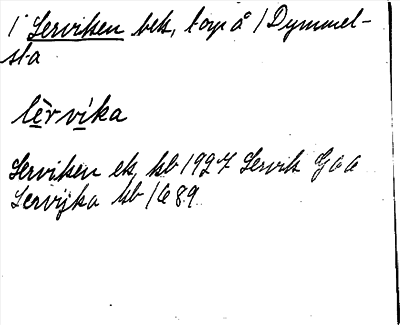 1 Lerviken bek, torp å 1 Dymmel-
sta
lèrvíka
Lerviken ek, kb 1927 Lervik Gaa
Lervijka kb 1689